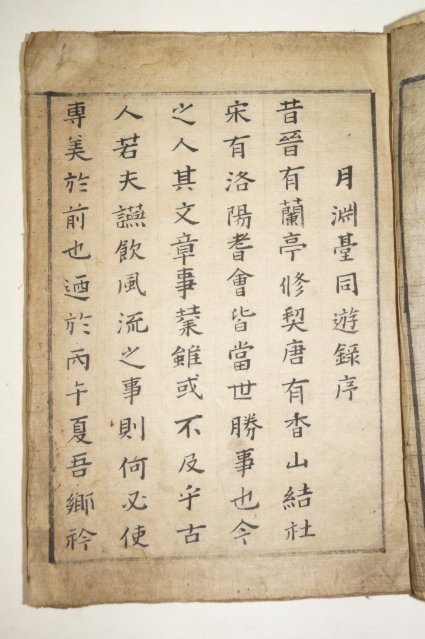 月淵臺同遊錄序
昔晉有蘭亭修契唐有香山結社
宋有洛陽耆會皆當世勝事也今
之人其文章事業雖或不及乎古
人若夫讌飮風流之事則何必使
專美於前也迺於丙午夏吾鄉衿